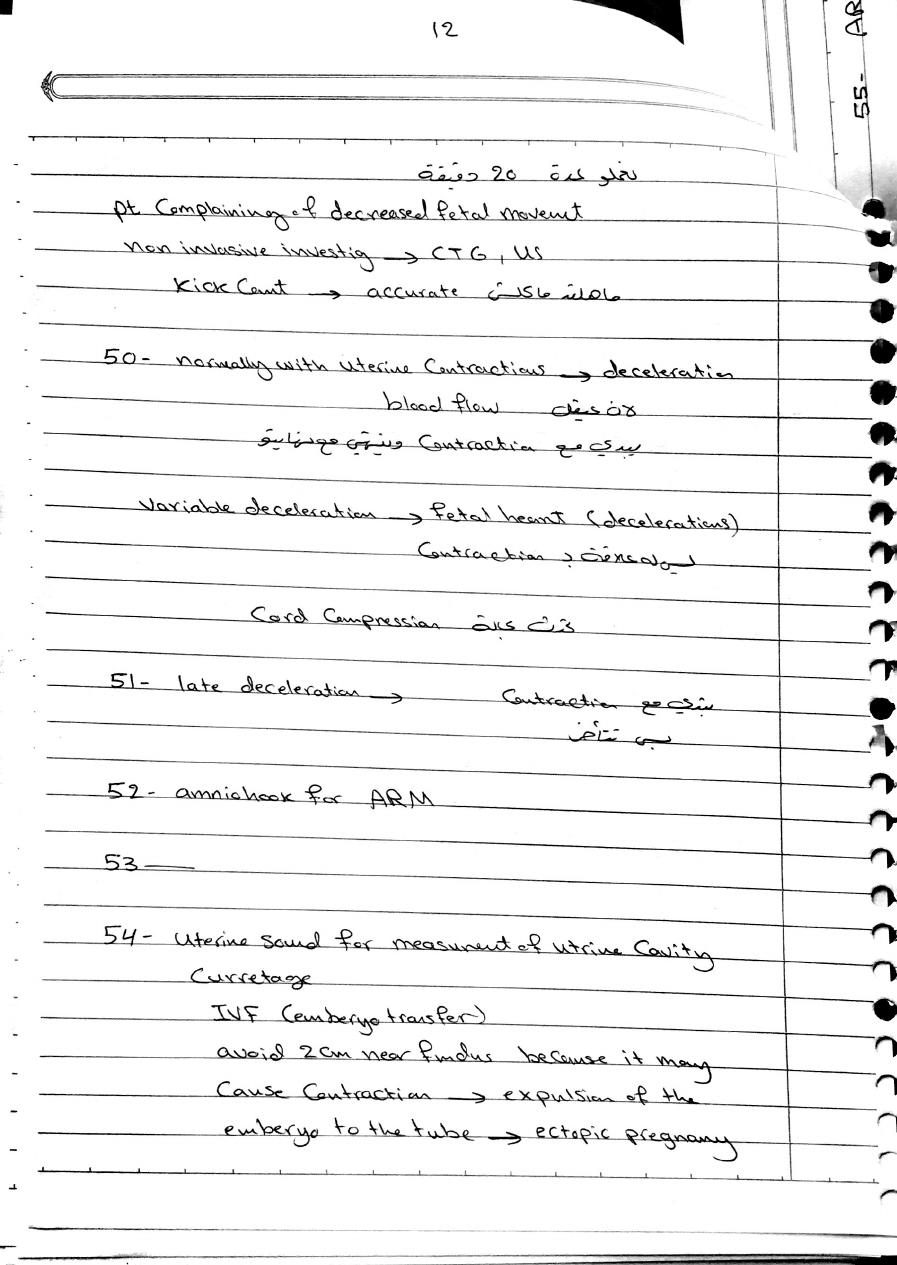 12
55- AR
نخلو لمدة 20 دقيقة
pt. Complaining of decreased fetal movemt
non invasive investig → CTG, US
Kick Count → accurate
50- normally with uterine Contractions → deceleration
blood flow
يبدي مع Contraction وينتهي مع نهايتو
Variable deceleration → fetal heart (decelerations)
Contraction
Cord Compression
51- late deceleration →
تبتدي مع Contraction
بس تتأخر
52- amniohook for ARM
53 —
54- Uterine sound for measurment of utrine Cavity
Curretage
IVF (emberyo transfer)
avoid 2cm near fundus because it may
Cause Contraction → expulsion of the
emberyo to the tube → ectopic pregnany